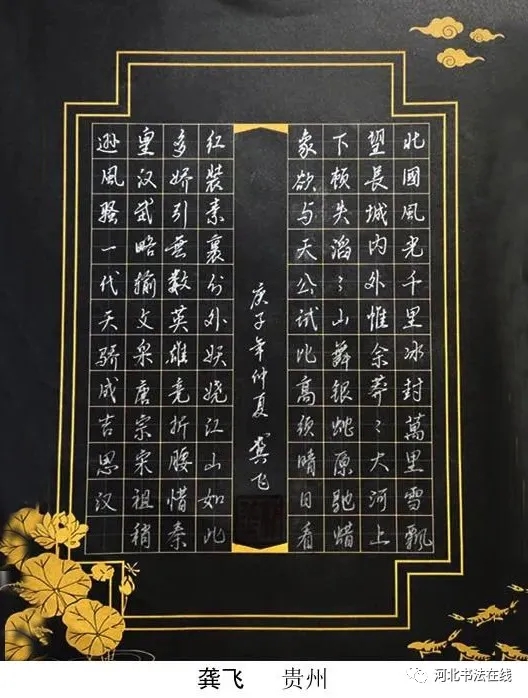 北國風光千里冰封萬里雪飄
望長城内外惟余莽〻大河上
下顿失滔〻山舞银蛇原驰蜡
象欲与天公试比高须晴日看
红装素裹分外妖娆江山如此
多娇引無数英雄竞折腰惜秦
皇汉武略输文采唐宗宋祖稍
逊風骚一代天骄成吉思汉
庚子年仲夏 龚飞
龚飞 贵州
河北书法在线